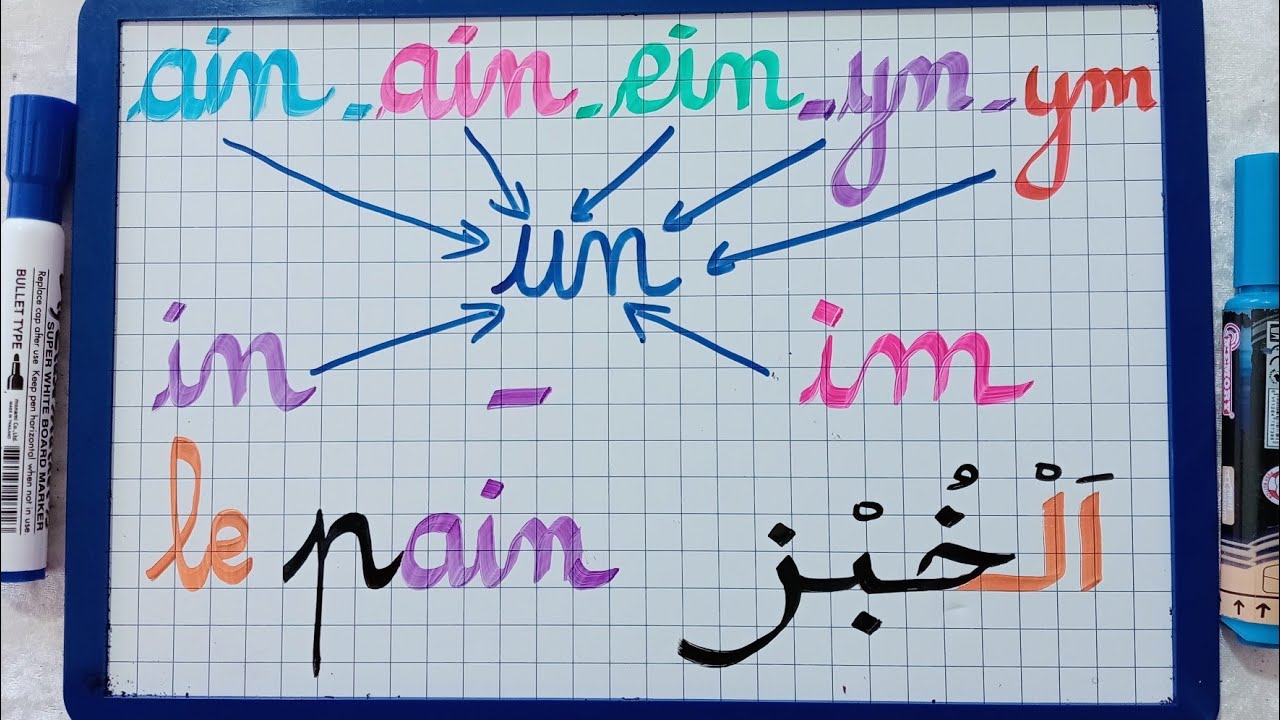 ain - ain - ein - yn - ym
un
in - im
le pain اَلْخُبْز
Replace cap after use Keep pen horizontal when not in use
SUPER WHITE BOARD MARKER
BULLET TYPE